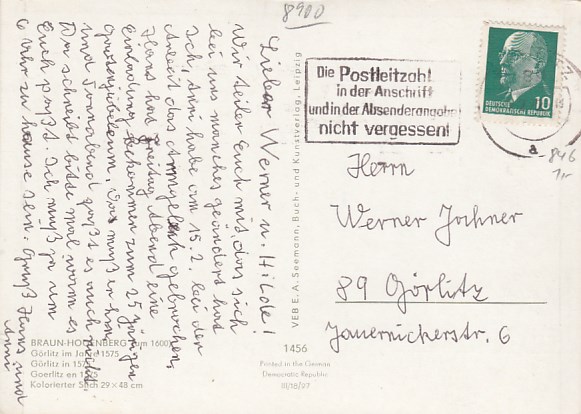 8900
Lieber Werner u. Hilde!
Wir teilen Euch mit das sich
bei uns manches geändert hat
Ich, Anni habe am 15.2. bei der
Arbeit das Armgelenk gebrochen,
Hans hat Freitag Abend eine
Einladung bekommen zum 25 jährigen
und Sonnabend passt es auch nicht
Nun schreibt bitte mal wann es
Euch paßt. Ich muß ja um
6 Uhr zu hause sein. Gruß Hans und
Anni
BRAUN-HOGENBERG (um 1600)
Görlitz im Jahre 1575
Görlitz in 1575
Goerlitz en 1575
Kolorierter Stich 29 × 48 cm
VEB E. A. Seemann, Buch- und Kunstverlag, Leipzig
1456
Printed in the German
Democratic Republic
III/18/97
Die Postleitzahl
in der Anschrift
und in der Absenderangabe
nicht vergessen!
DEUTSCHE
DEMOKRATISCHE REPUBLIK
10
a
846
Herrn
Werner Jochner
89 Görlitz
Jauernickerstr. 6